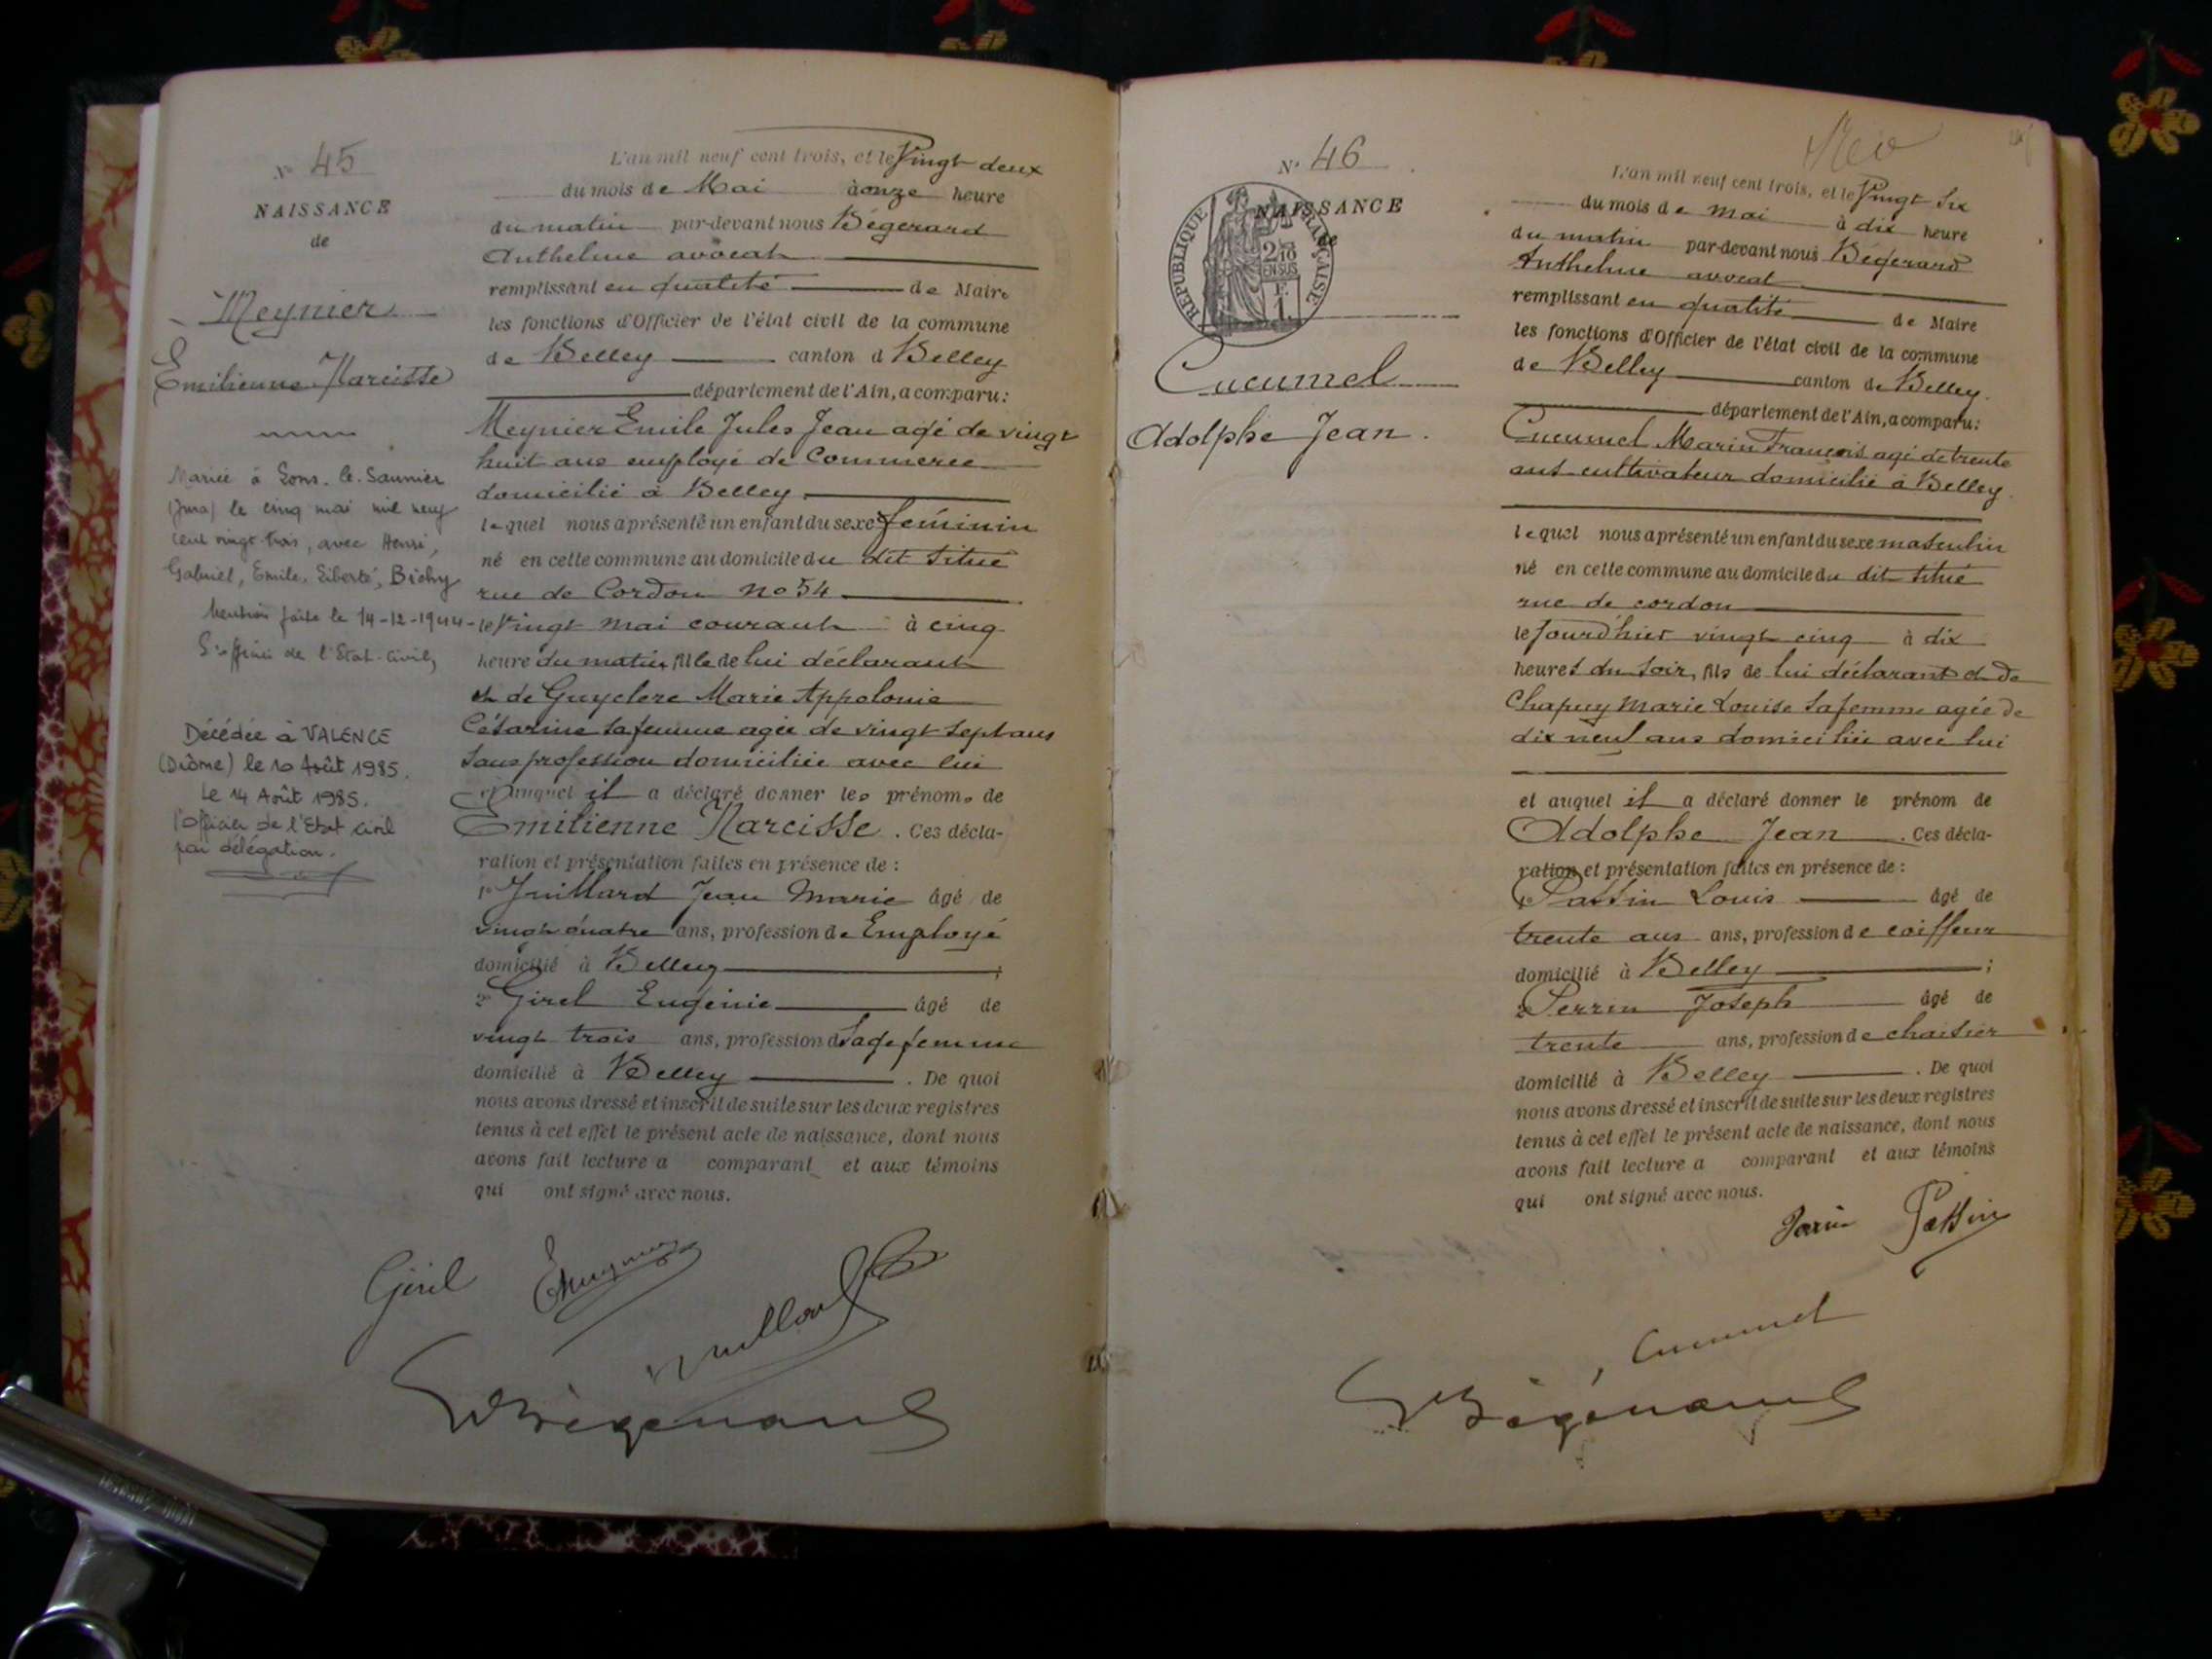 N° 45
NAISSANCE
de
Meynier
Emilienne Narcisse
Mariée à Lons-le-Saunier
(Jura) le cinq mai mil neuf
cent vingt trois, avec Henri,
Gabriel, Emile, Liberté, Bichy
Mention faite le 14-12-1944-
L'officier de l'Etat-Civil,
Décédée à VALENCE
(Drôme) le 10 Août 1985.
Le 14 Août 1985.
l'officier de l'Etat civil
par délégation.
L'an mil neuf cent trois, et le Vingt deux
du mois de Mai à onze heure
du matin par-devant nous Bégerard
Anthelme avocat
remplissant en qualité de Maire
les fonctions d'Officier de l'état civil de la commune
de Belley canton d Belley
département de l'Ain, a comparu:
Meynier Emile Jules Jean agé de vingt
huit ans employé de Commerce
domicilié à Belley
lequel nous a présenté un enfant du sexe féminin
né en cette commune au domicile du dit situé
rue de Cordon no 54
le Vingt mai courant à cinq
heure du matin, fille de lui déclarant
et de Guyclere Marie Appolonie
Césarine sa femme agée de vingt sept ans
sans profession domiciliée avec lui
et auquel il a déclaré donner les prénoms de
Emilienne Narcisse. Ces décla-
ration et présentation faites en présence de :
1° Juillard Jean Marie âgé de
vingt quatre ans, profession de Employé
domicilié à Belley ;
2° Girel Eugénie âgé de
vingt trois ans, profession d sage femme
domicilié à Belley . De quoi
nous avons dressé et inscrit de suite sur les deux registres
tenus à cet effet le présent acte de naissance, dont nous
avons fait lecture a comparant et aux témoins
qui ont signé avec nous.
Girel
Juillard
Bégerard
N° 46
NAISSANCE
de
RÉPUBLIQUE FRANÇAISE
2/10
EN SUS
F.
1.
Cucumel
Adolphe Jean.
L'an mil neuf cent trois, et le Vingt six
du mois de mai à dix heure
du matin par-devant nous Bégerard
Anthelme avocat
remplissant en qualité de Maire
les fonctions d'Officier de l'état civil de la commune
de Belley canton de Belley.
département de l'Ain, a comparu:
Cucumel Marin François agé de trente
ans cultivateur domicilié à Belley
lequel nous a présenté un enfant du sexe masculin
né en cette commune au domicile du dit situé
rue de cordon
le jour d'hier vingt cinq à dix
heures du soir, fils de lui déclarant et de
Chapuy Marie Louise sa femme agée de
dix neuf ans domiciliée avec lui
et auquel il a déclaré donner le prénom de
Adolphe Jean . Ces décla-
ration et présentation faites en présence de :
Passin Louis âgé de
trente ans ans, profession de coiffeur
domicilié à Belley ;
2° Perrin Joseph âgé de
trente ans, profession de chaisier
domicilié à Belley . De quoi
nous avons dressé et inscrit de suite sur les deux registres
tenus à cet effet le présent acte de naissance, dont nous
avons fait lecture a comparant et aux témoins
qui ont signé avec nous.
Perrin Passin
Cucumel
Bégerard